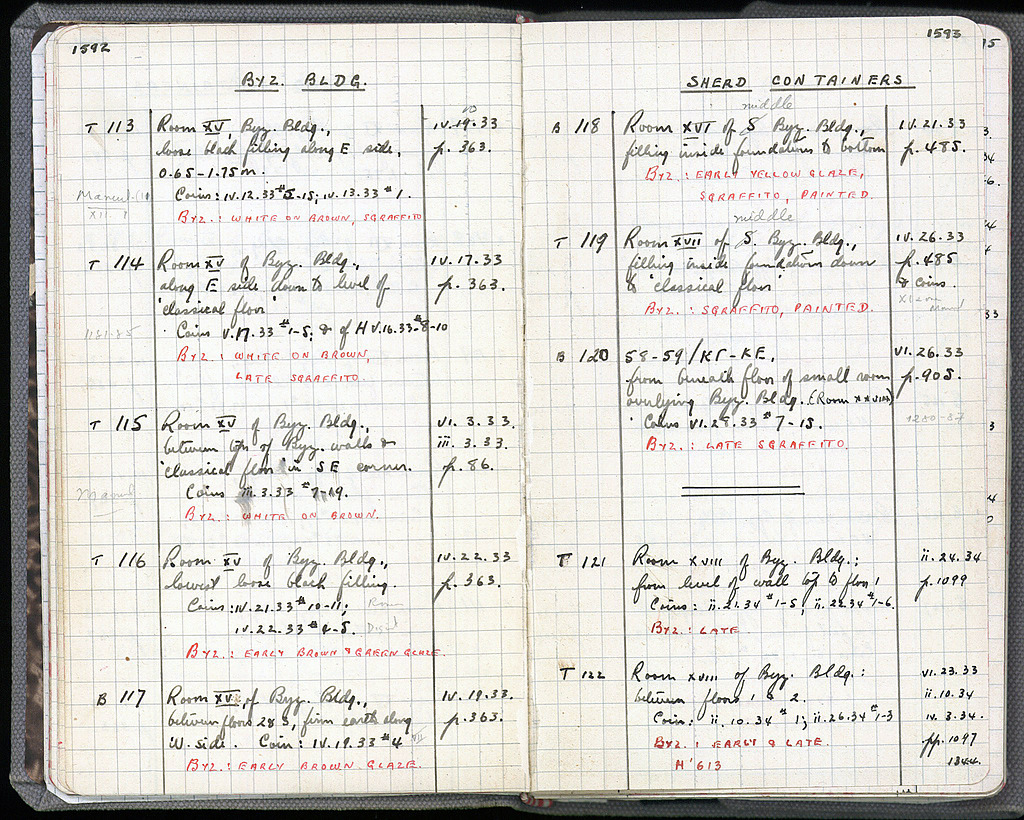 1592
BYZ. BLDG.
T 113 Room XV, Byz. Bldg., IV.19.33
loose black filling along E side, p. 363.
0.65-1.75m.
Coins: IV.12.33 #5-15; IV.13.33 #1.
BYZ.: WHITE ON BROWN, SGRAFFITO
T 114 Room XV of Byz. Bldg., IV.17.33
along E side down to level of p. 363.
'classical floor'
Coins V.17.33 #1-5; & of H V.16.33 #8-10
1181-85
BYZ.: WHITE ON BROWN,
LATE SGRAFFITO.
T 115 Room XV of Byz. Bldg., VI. 3.33.
between tops of Byz. walls & iii. 3.33.
'classical floor' in SE corner. p. 86.
Coins iii.3.33 #7-19.
Manuel
BYZ.: WHITE ON BROWN.
T 116 Room XV of Byz. Bldg., IV.22.33
lowest loose black filling. p. 363.
Coins: IV.21.33 #10-11;
IV.22.33 #4-5.
BYZ.: EARLY BROWN & GREEN GLAZE.
B 117 Room XV of Byz. Bldg., IV.19.33.
between floors 2 & 3, from earth along p. 363.
W. side. Coin: IV.19.33 #4 VII
BYZ.: EARLY BROWN GLAZE.
1593
SHERD CONTAINERS
middle
B 118 Room XVI of S Byz. Bldg., IV.21.33
filling inside foundations to bottom p. 485.
BYZ.: EARLY YELLOW GLAZE,
SGRAFFITO, PAINTED.
middle
T 119 Room XVII of S. Byz. Bldg., IV.26.33
filling inside foundation down p. 485
to 'classical floor' & Coins.
BYZ.: SGRAFFITO, PAINTED.
B 120 58-59/ΚΓ-ΚΕ, VI.26.33
from beneath floor of small room p. 905.
overlying Byz. Bldg. (Room XXVIII)
Coins VI.28.33 #7-15.
1280-87
BYZ.: LATE SGRAFFITO.
T 121 Room XVIII of Byz. Bldg.; ii.24.34
from level of wall top to floor 1 p. 1099
Coins: ii.21.34 #1-5; ii.22.34 #1-6.
BYZ.: LATE.
T 122 Room XVIII of Byz. Bldg.: VI.23.33
between floors 1 & 2. ii.10.34
Coin: ii.10.34 #1; ii.26.34 #1-3 IV. 3.34.
BYZ.: EARLY & LATE. pp. 1097
H'613 1344.